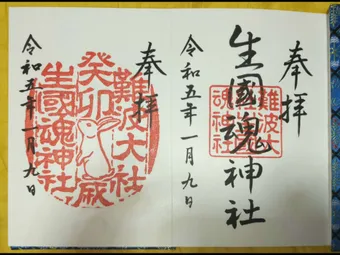 奉拝
生國魂神社
難波大社
生國魂神社
令和五年一月九日
奉拝
難波大社
癸卯
生國魂神社
令和五年一月九日